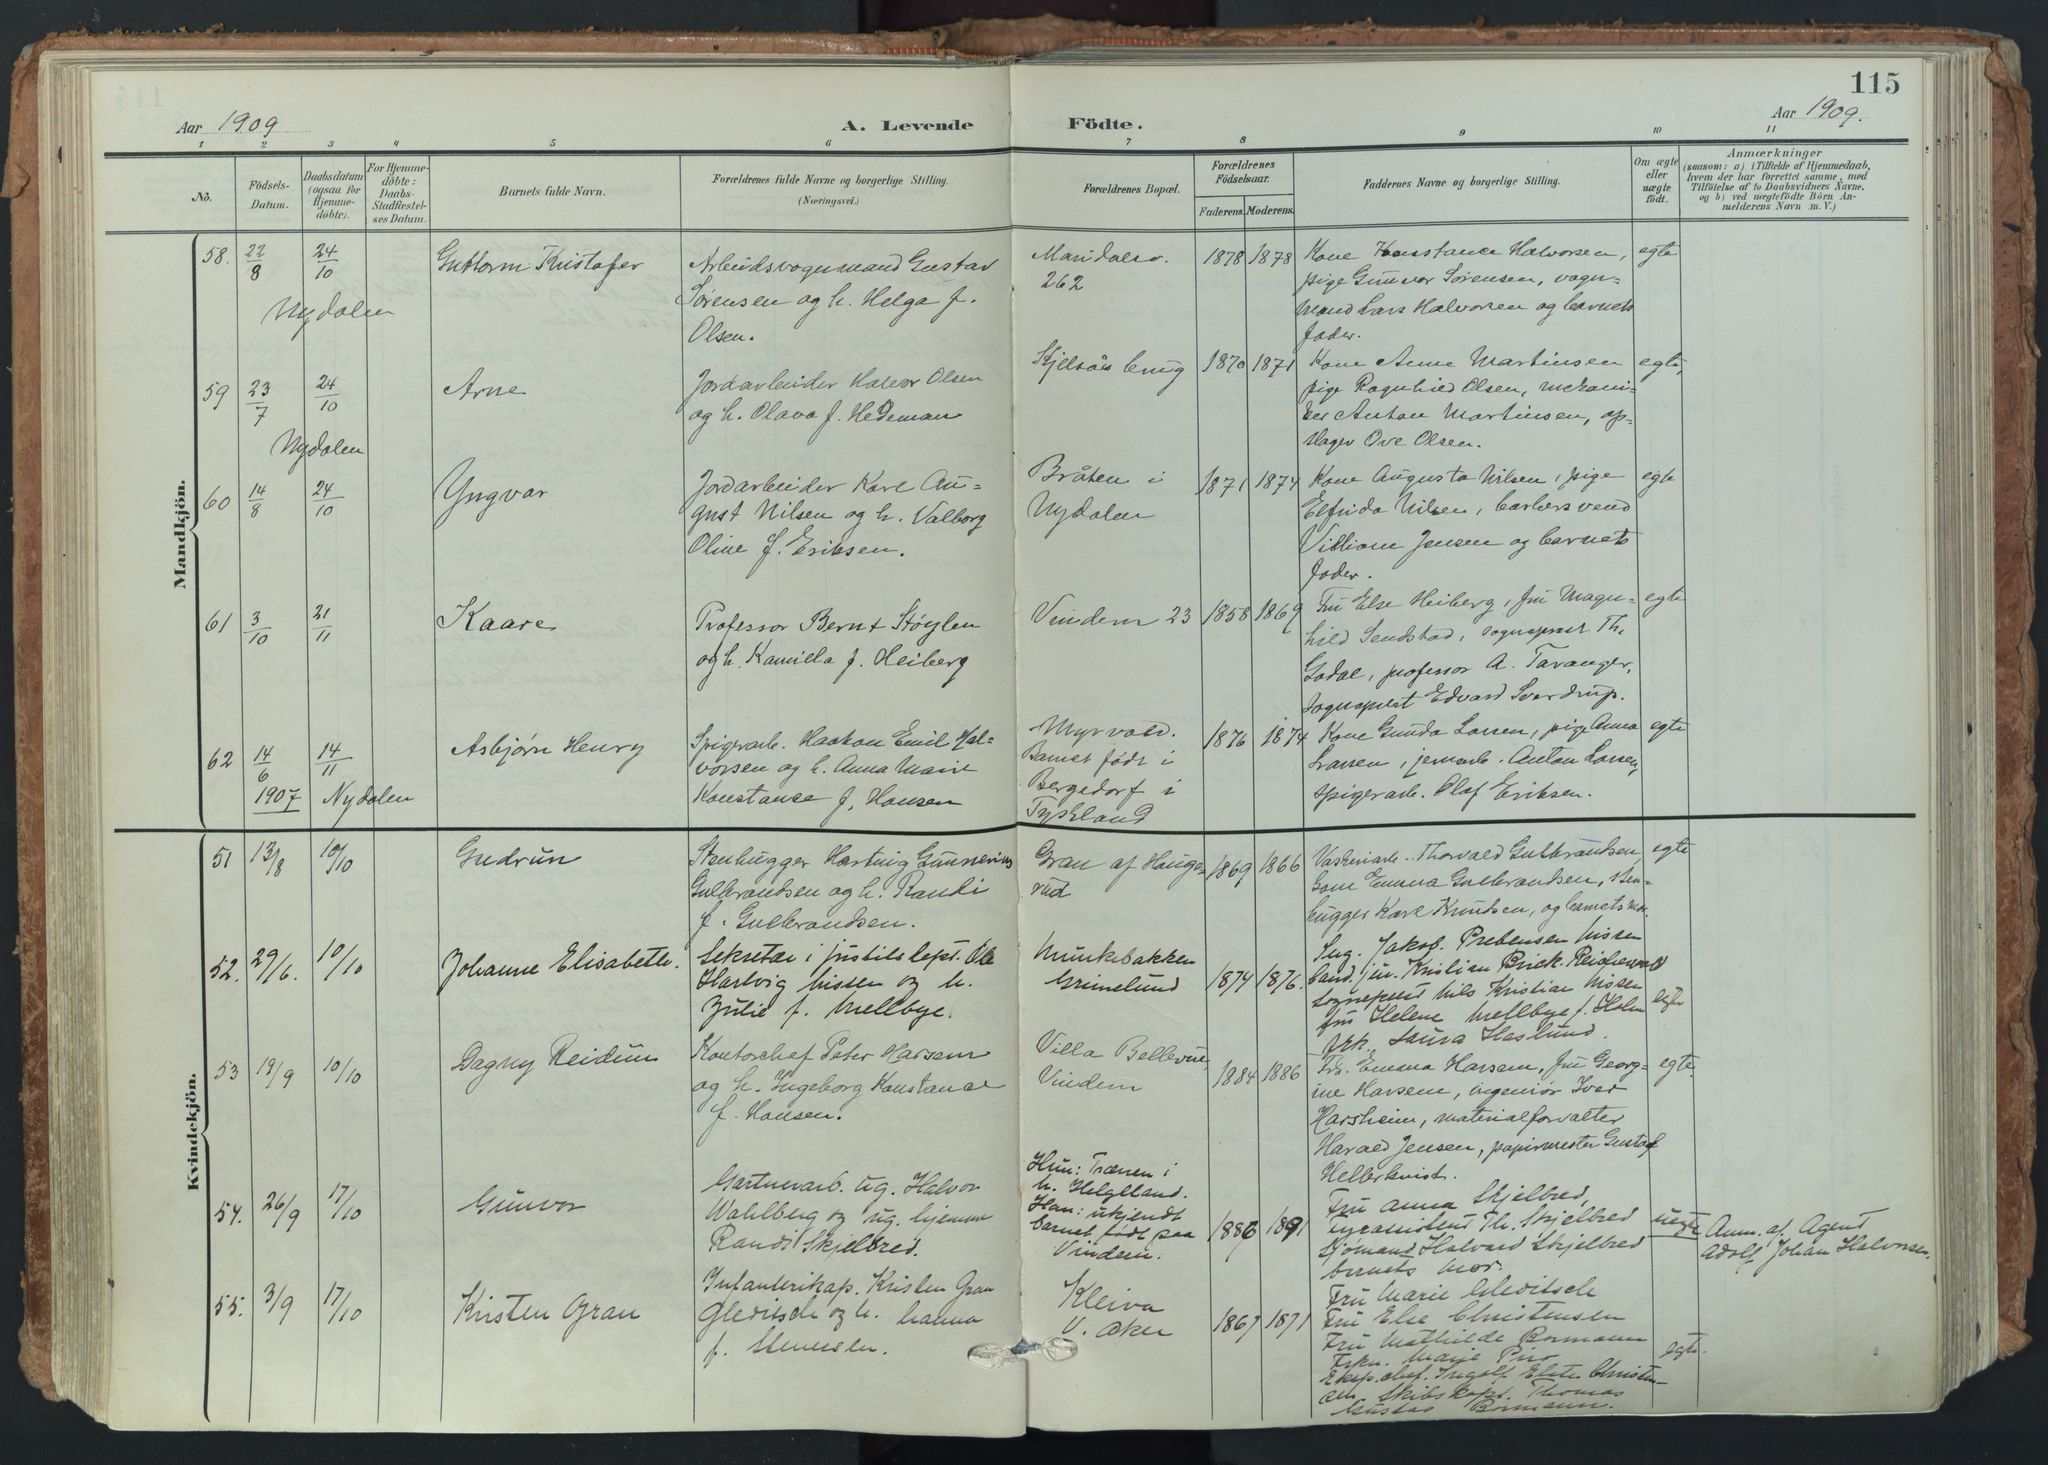 115
Aar 1909
A. Levende Födte.
Aar 1909.
1 2 3 4 5 6 7 8 9 10 11
No.
Födsels-
Datum.
Daabsdatum
(ogsaa for
Hjemme-
döbte).
For Hjemme-
döbte:
Daabs-
Stadfæstel-
ses Datum.
Barnets fulde Navn.
Forældrenes fulde Navne og borgerlige Stilling.
(Næringsvei.)
Forældrenes Bopæl.
Forældrenes
Födselsaar.
Faderens. Moderens.
Faddernes Navne og borgerlige Stilling.
Om ægte
eller
uægte
födt.
Anmærkninger
(saasom: a) i Tilfælde af Hjemmedaab,
hvem der har forrettet samme, med
Tilföielse af to Daabsvidners Navne,
og b) ved uægtefödte Börn An-
melderens Navn m. V.)
Mandkjön.
58. 22/8 24/10
Nydalen
Guttorm Kristofer
Arbeidsvognmand Gustav
Sørensen og h. Helga f.
Olsen.
Maridalsv.
262
1878 1878
Kone Konstance Halvorsen,
pige Gunvor Sørensen, vogn-
mand Lars Halvorsen og barnets
fader.
egte
59 23/7 24/10
Nydalen
Arne
Jordarbeider Halvor Olsen
og h. Olava f. Hedeman
Kjelsås brug
1870 1871
Kone Anne Martinsen
pige Ragnhild Olsen, mekani-
ker Anton Martinsen, op-
slager Ove Olsen.
egte,
60 14/8 24/10
Yngvar
Jordarbeider Karl Au-
gust Nilsen og h. Valborg
Oline f. Eriksen.
Bråten i
Nydalen
1871 1874
Kone Augusta Nilsen, pige
Elfrida Nilsen, barbersvend
Villiam Jensen og barnets
fader.
egte
61 3/10 21/11
Kaare
Professor Bernt Støylen
og h. Kamilla f. Heiberg
Vindern 23
1858 1869
Fru Else Heiberg, fru Magn-
hild Sendstad, sogneprest Th.
Godal, professor A. Taranger,
sogneprest Edvard Sverdrup.
egte
62 14/6 1907 14/11
Nydalen
Asbjørn Henry
Spigerarb. Haakon Emil Hal-
vorsen og h. Anna Marie
Konstance f. Hansen
Myrvold.
Barnet født i
Bergedorf i
Tyskland
1876 1874
Kone Gunda Larsen, pige Anna
Larsen, jernarb. Anton Larsen,
spigerarb. Olaf Eriksen.
egte
Kvindekjön.
51 13/8 10/10
Gudrun
Stenhugger Hartvig Gunnerius
Gulbrandsen og h. Randi
f. Gulbrandsen.
Gran af Hauge-
rud
1869 1866
Vaskeriarb. Thorvald Gulbrandsen,
Kone Emma Gulbrandsen, sten-
hugger Karl Knudsen, og barnets mor.
egte
52. 29/6. 10/10
Johanne Elisabeth.
Sekretær i justitsdept. Ole
Hartvig Nissen og h.
Julie f. Mellbye.
Munkebakken
Grimelund
1874 1876.
Ing. Jakob Prebensen Nissen
Cand. jur. Kristian Brick Reichenwald
Sogneprest Nils Kristian Nissen
fru Helene Mellbye f. Holm
frk. Laura Haslund.
egte
53 19/9 10/10
Dagny Reidun
Kontorchef Peter Harsem
og h. Ingeborg Konstance
f. Hansen.
Villa Bellevue,
Vindern
1884 1886
Fr. Emma Harsem, fru Georg-
ine Harsem, ingeniør Ivar
Harsheim, materialforvalter
Harald Jensen, papirmester Gustaf
Hellerkvist.
egte.
54. 26/9 17/10
Gunvor
Gartnerarb. ug. Halvor
Wahlberg og ug. hjemme
Randi Skjelbred.
Hun: Trænen i
n. Helgeland.
Han: ukjendt
barnet født paa
Vindern.
1886 1891
Fru Anna Skjelbred,
Fyrassistent Th. Skjelbred
Sjømand Halvard Skjelbred
barnets mor.
uegte
Anm. af. Agent
Adolf Johan Halvorsen.
55. 3/9 17/10
Kristen Gran
Infanterikap. Kristen Gran
Gleditsch og h. Nanna
f. Stenersen.
Kleiva
V. Aker
1867 1871
Fru Marie Gleditsch
Fru Else Christensen
Fru Mathilde Bormann
Frkn. Marie
Eksp.chef. Ingolf Christen-
sen Skibskapt. Thomas
Gustav Bormann.
egte.